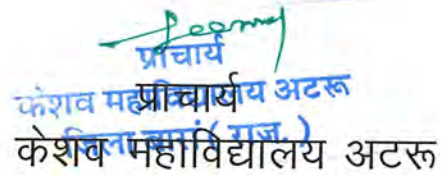 प्राचार्य
केशव महाविद्यालय अटरू
प्राचार्य
जिला बारां ( राज. )
केशव महाविद्यालय अटरू